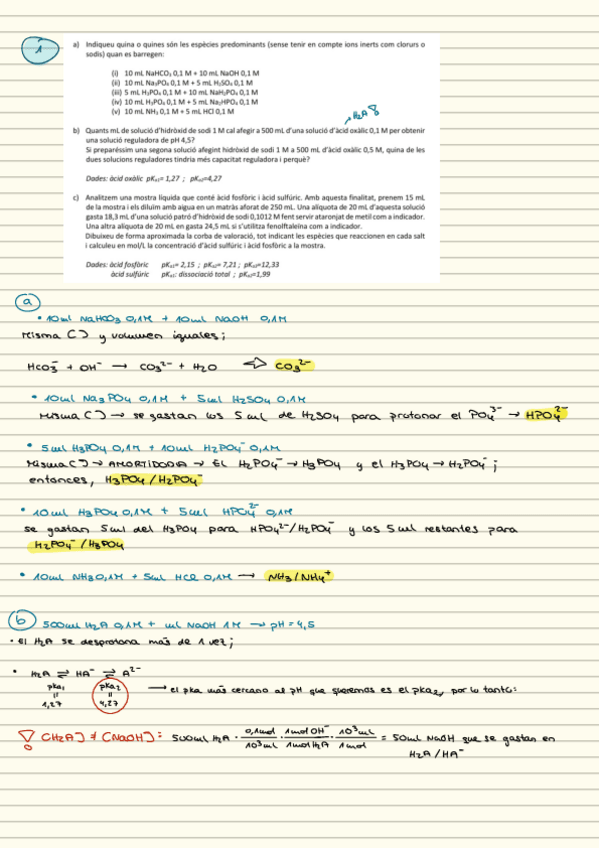 1
a) Indiqueu quina o quines són les espècies predominants (sense tenir en compte ions inerts com clorurs o
sodis) quan es barregen:
(i) 10 mL NaHCO₃ 0,1 M + 10 mL NaOH 0,1 M
(ii) 10 mL Na₃PO₄ 0,1 M + 5 mL H₂SO₄ 0,1 M
(iii) 5 mL H₃PO₄ 0,1 M + 10 mL NaH₂PO₄ 0,1 M
(iv) 10 mL H₃PO₄ 0,1 M + 5 mL Na₂HPO₄ 0,1 M
(v) 10 mL NH₃ 0,1 M + 5 mL HCl 0,1 M
H₂A
b) Quants mL de solució d'hidròxid de sodi 1 M cal afegir a 500 mL d'una solució d'àcid oxàlic 0,1 M per obtenir
una solució reguladora de pH 4,5?
Si preparéssim una segona solució afegint hidròxid de sodi 1 M a 500 mL d'àcid oxàlic 0,5 M, quina de les
dues solucions reguladores tindria més capacitat reguladora i perquè?
Dades: àcid oxàlic pKₐ₁= 1,27 ; pKₐ₂=4,27
c) Analitzem una mostra líquida que conté àcid fosfòric i àcid sulfúric. Amb aquesta finalitat, prenem 15 mL
de la mostra i els diluïm amb aigua en un matràs aforat de 250 mL. Una alíquota de 20 mL d'aquesta solució
gasta 18,3 mL d'una solució patró d'hidròxid de sodi 0,1012 M fent servir ataronjat de metil com a indicador.
Una altra alíquota de 20 mL en gasta 24,5 mL si s'utilitza fenolftaleïna com a indicador.
Dibuixeu de forma aproximada la corba de valoració, tot indicant les espècies que reaccionen en cada salt
i calculeu en mol/L la concentració d'àcid sulfúric i àcid fosfòric a la mostra.
Dades: àcid fosfòric pKₐ₁= 2,15 ; pKₐ₂= 7,21 ; pKₐ₃=12,33
àcid sulfúric pKₐ₁: dissociació total ; pKₐ₂=1,99
a
• 10ml NaHCO3 0,1M + 10ml NaOH 0,1M
Misma C) y volumen iguales;
HCO₃⁻ + OH⁻ → CO₃²⁻ + H₂O ⇒ CO₃²⁻
• 10ml Na3PO4 0,1M + 5ml H2SO4 0,1M
Misma C) → se gastan los 5ml de H2SO4 para protonar el PO4³⁻ → HPO4²⁻
• 5ml H3PO4 0,1M + 10ml H2PO4⁻ 0,1M
Misma C) → AMORTIDORA → El H2PO4⁻ → H3PO4 y el H3PO4 → H2PO4⁻;
entonces, H3PO4/H2PO4⁻
• 10ml H3PO4 0,1M + 5ml HPO4²⁻ 0,1M
se gastan 5ml del H3PO4 para HPO4²⁻/H2PO4⁻ y los 5ml restantes para
H2PO4⁻/H3PO4
• 10ml NH3 0,1M + 5ml HCl 0,1M → NH3/NH4⁺
b 500ml H2A 0,1M + ml NaOH 1M → pH = 4,5
• El H2A se desprotona más de 1 vez;
• H2A ⇌ HA⁻ ⇌ A²⁻
pka₁ = 1,27 pka₂ = 4,27 → el pka más cercano al pH que queremos es el pka₂, por lo tanto:
[H2A] ≠ [NaOH]: 500ml H2A · 0,1mol/10³ml · 1mol OH⁻/1mol H2A · 10³ml/1mol = 50ml NaOH que se gastan en
H2A/HA⁻